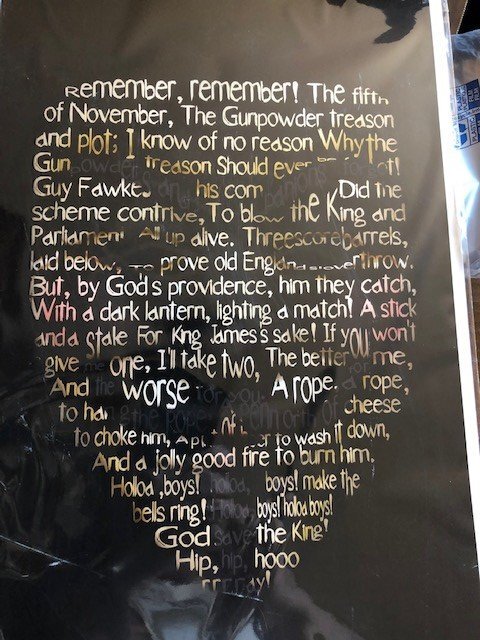 Remember, remember! The fifth
of November, The Gunpowder treason
and plot; I know of no reason Why the
Gunpowder treason Should ever
Guy Fawkes and his companions Did the
scheme contrive, To blow the King and
Parliament All up alive. Threescore barrels,
laid below, to prove old England's overthrow.
But, by God's providence, him they catch,
With a dark lantern, lighting a match! A stick
and a stake For King James's sake! If you won't
give me one, I'll take two, The better for me,
And the worse for you. A rope, a rope,
to hang the Pope, A penn'orth of cheese
to choke him, A pint of beer to wash it down,
And a jolly good fire to burn him.
Holloa, boys! holloa, boys! make the
bells ring! Holloa, boys! holloa boys!
God save the King!
Hip, hip, hooo
rrrray!